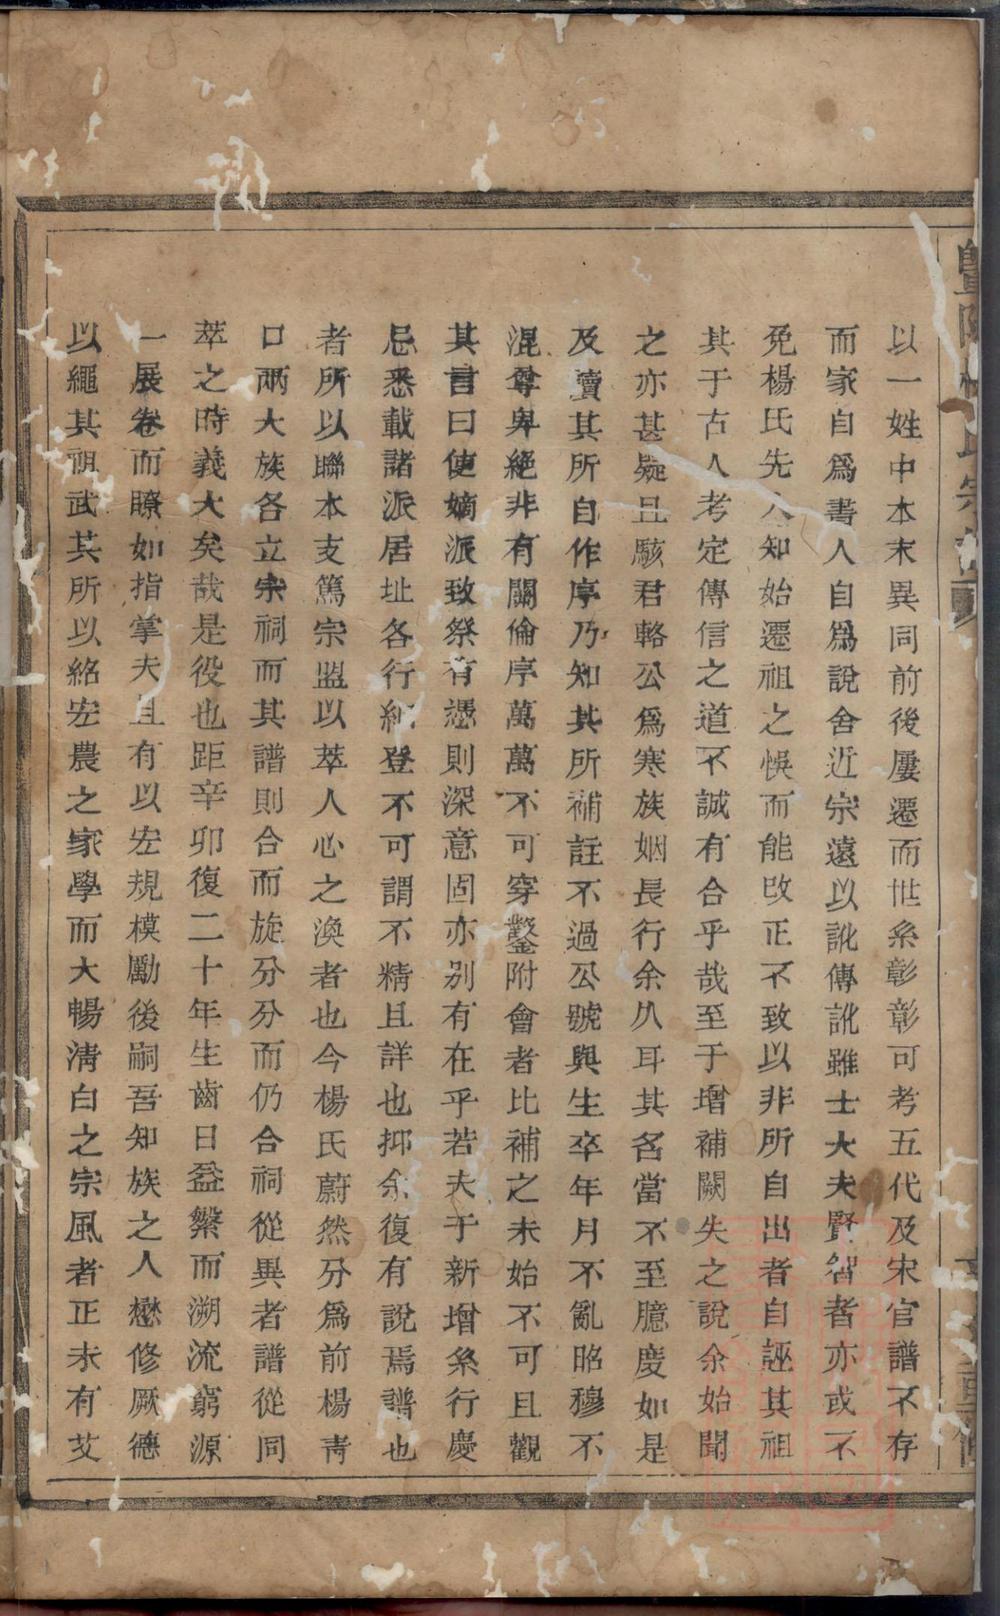 以一姓中本末異同前後屢遷而世系彰彰可考五代及宋官譜不存
而家自爲書人自爲說舍近宗遠以訛傳訛雖士大夫賢智者亦或不
免楊氏先人知始遷祖之悞而能改正不致以非所自出者自誣其祖
其于古人考定傳信之道不誠有合乎哉至于增補闕失之說余始聞
之亦甚疑且駭君輅公爲寒族姻長行余久耳其名當不至臆慶如是
及讀其所自作序乃知其所補註不過公號與生卒年月不亂昭穆不
混尊卑絶非有關倫序萬萬不可穿鑿附會者比補之未始不可且觀
其言曰使嫡派致祭有憑則深意固亦别有在乎若夫于新增系行慶
忌悉載諸派居址各行紀登不可謂不精且詳也抑余復有說焉譜也
者所以聯本支篤宗盟以萃人心之渙者也今楊氏蔚然分爲前楊靑
口兩大族各立宗祠而其譜則合而旋分分而仍合祠從異者譜從同
萃之時義大矣哉是役也距辛卯復二十年生齒日益繁而溯流窮源
一展卷而瞭如指掌夫且有以宏規模勵後嗣吾知族之人懋修厥德
以繩其祖武其所以紹宏農之家學而大暢淸白之宗風者正未有艾